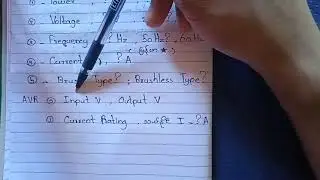 Power,
Voltage
③ - Frequency ? Hz, 50 Hz?, 60 Hz
④ - Current , ? A
⑤ - Brush Type? , Brushless Type?
AVR ⑥ Input V, Output V
① Current Rating, I - ? A